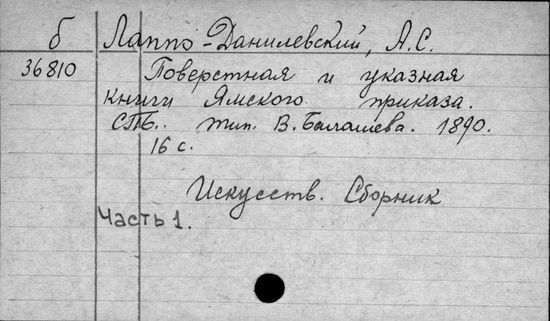 б Лаппо-Данилевский, А.С.
36810 Поверстная и указная
книги Ямского приказа.
СПБ. тип. В. Балашева. 1890.
16 с.
Искусств. Сборник
Часть 1.